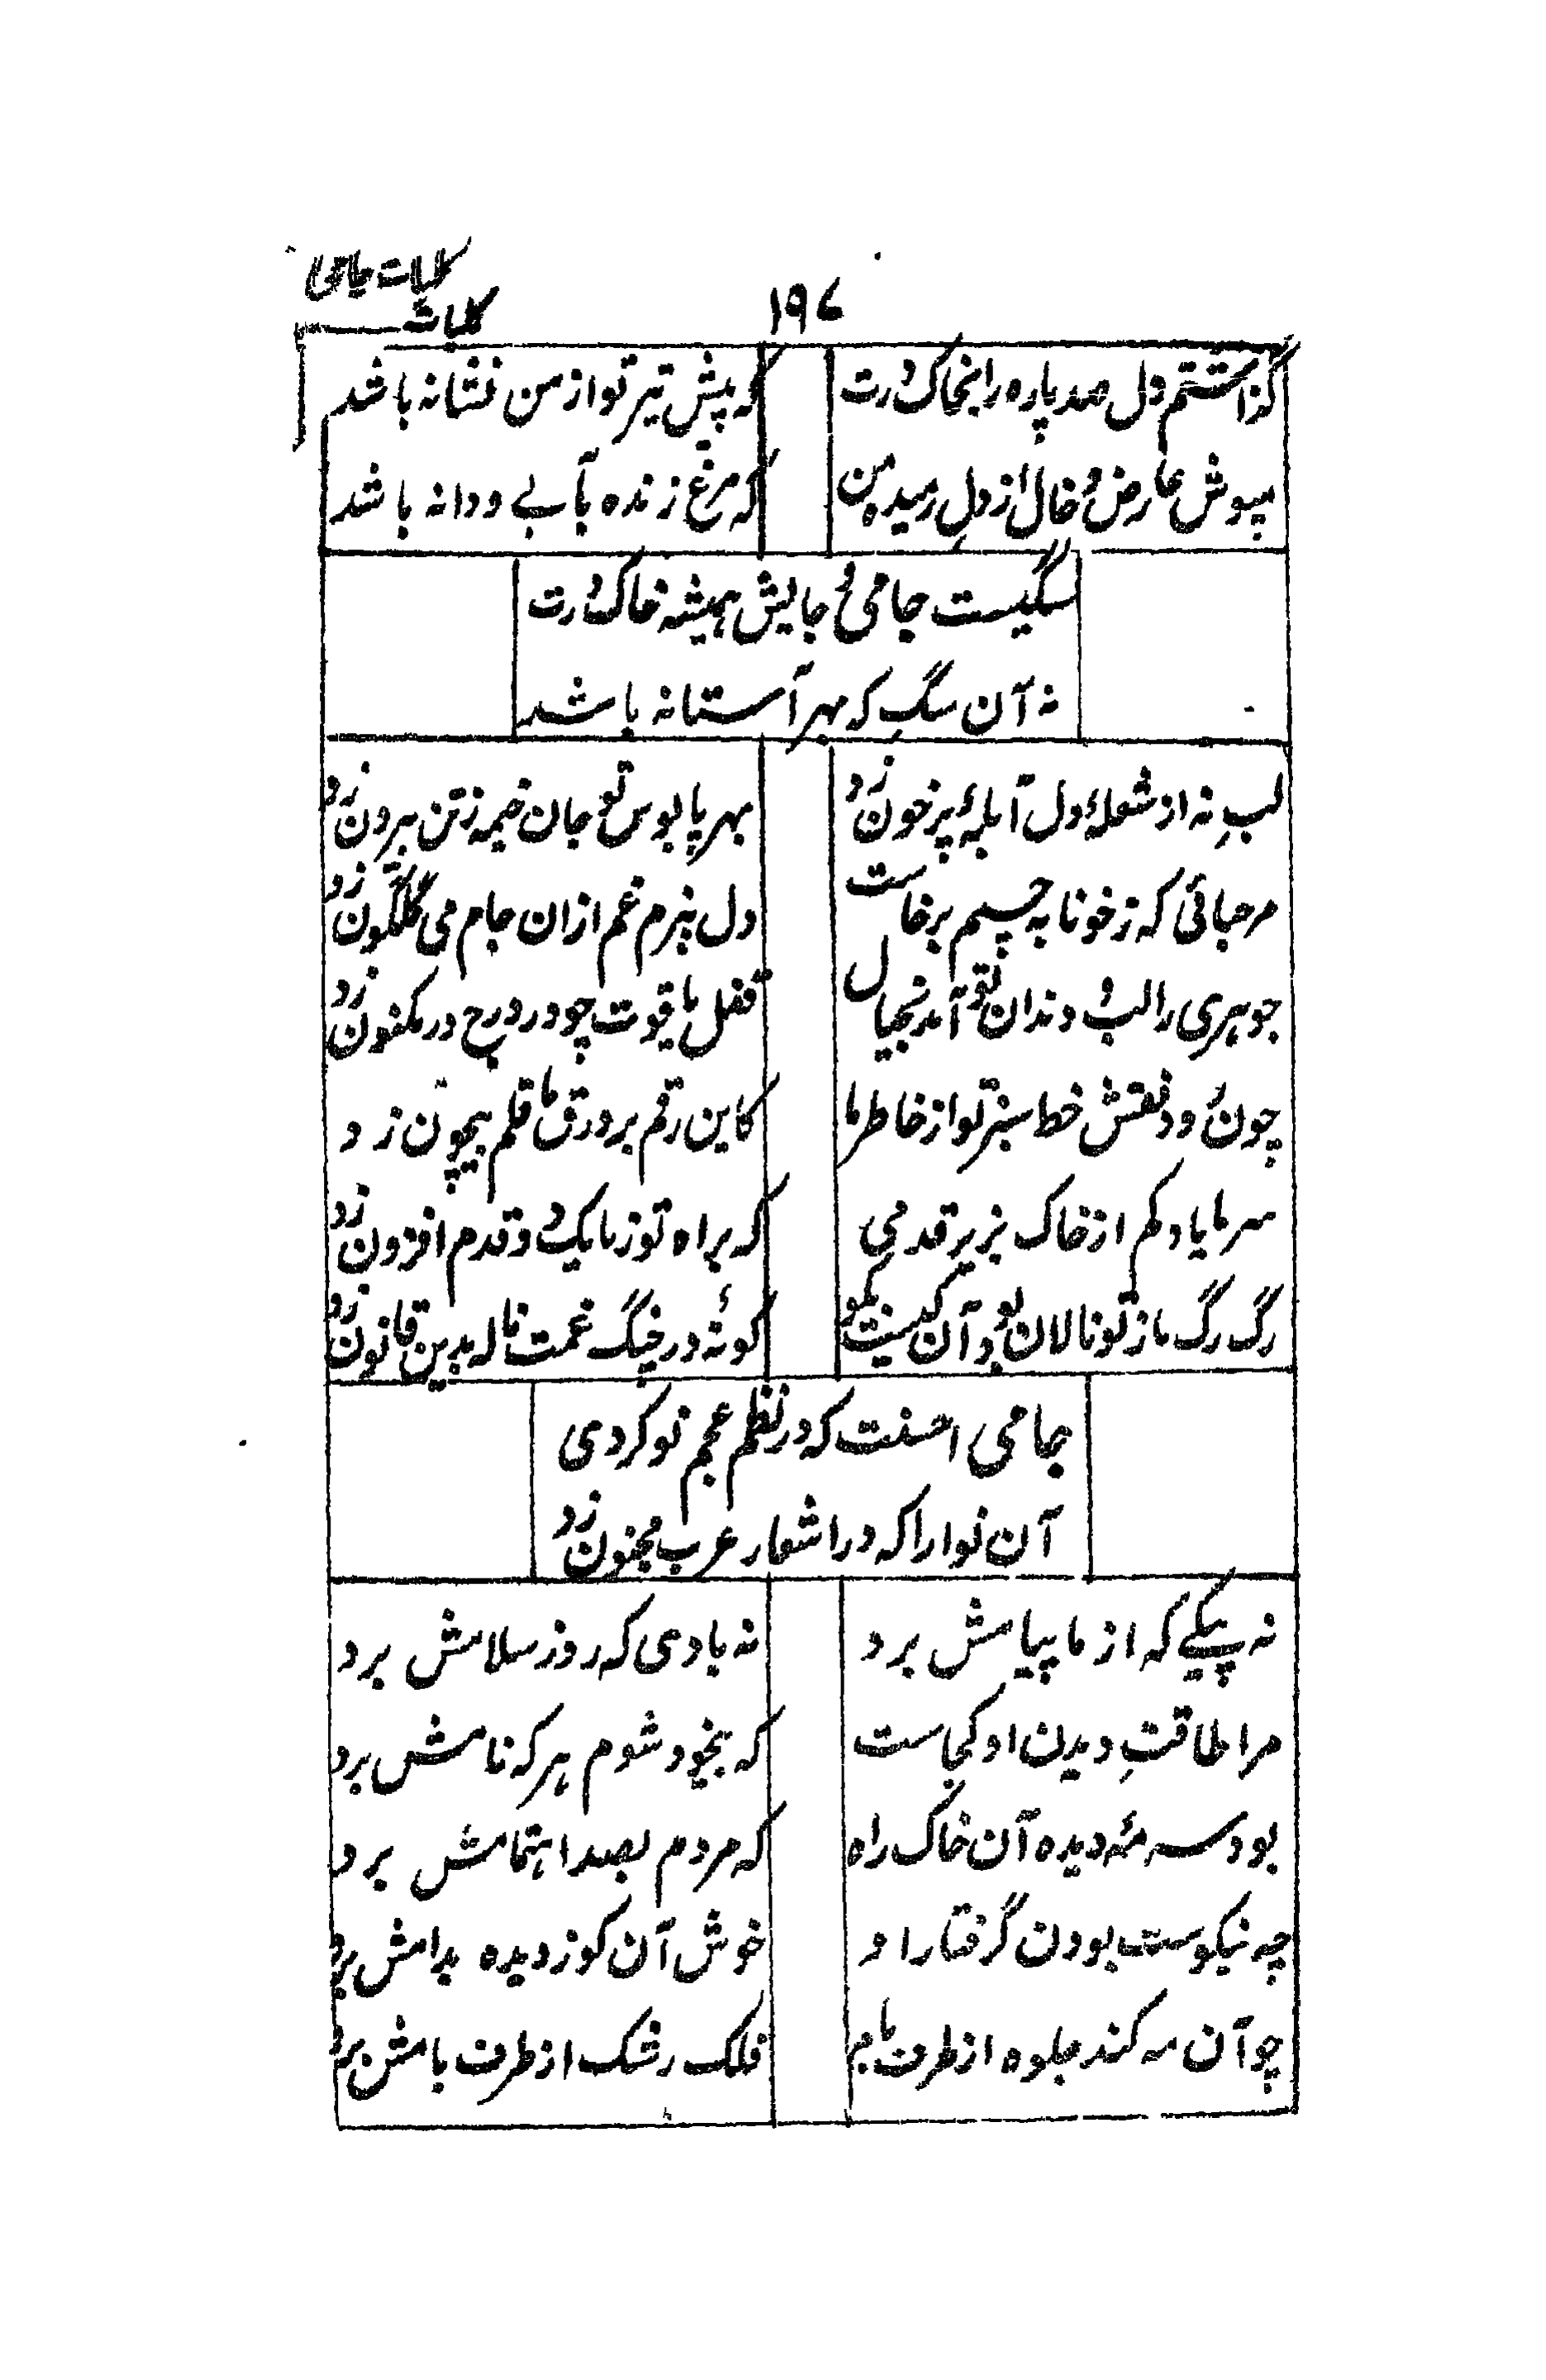 کلیات جامی
۱۹۷
کلیات
گذاشتم دل صد پاره را بخاک درت
که پیش تیر تو از من نشانه باشد
بپوش عارض و خال از دلِ رمیده من
که مرغ زنده بآبے و دانه باشد
سگیست جامی و جایش همیشه خاک درت
نه آن سگِ که بهر آستانه باشد
لبِ نه از شعلهٔ دل آبلهٔ پرخون زد
بهر پابوس تو جان خیمه زتن بیرون زد
مرحبائی که زخونابه چشمم برخاست
دل ببزم غم ازان جام می گلگون زد
جوهری را لب و دندان تو آمد بخیال
قفل یاقوت چو در درج در مکنون زد
چون رود نقش خط سبز تو از خاطر ما
کاین رقم بر ورق ما قلم بیچون زد
سر ما باد کم از خاک بزیر قدمی
که براه تو ز ما یک دو قدم افزون زد
رگ رگ ما ز تو نالان بود آن کیست بگو
کو نه در چنگ غمت ناله بدین قانون زد
جامی احسنت که در نظم عجم نو کردی
آن نوا را که در اشعار عرب مجنون زد
نه پیکے که از ما پیامش برد
نه بادی که روز سلامش برد
مرا طاقتِ دیدن او کجاست
که بیخود شوم هر که نامش برد
بود سرمهٔ دیده آن خاک راه
که مردم بصد اهتمامش برد
چه نیکوست بودن گرفتار او
خوش آن کو ز دیده بدامش برد
چو آن مه کند جلوه از طرف بام
فلک رشک از طرف بامش برد